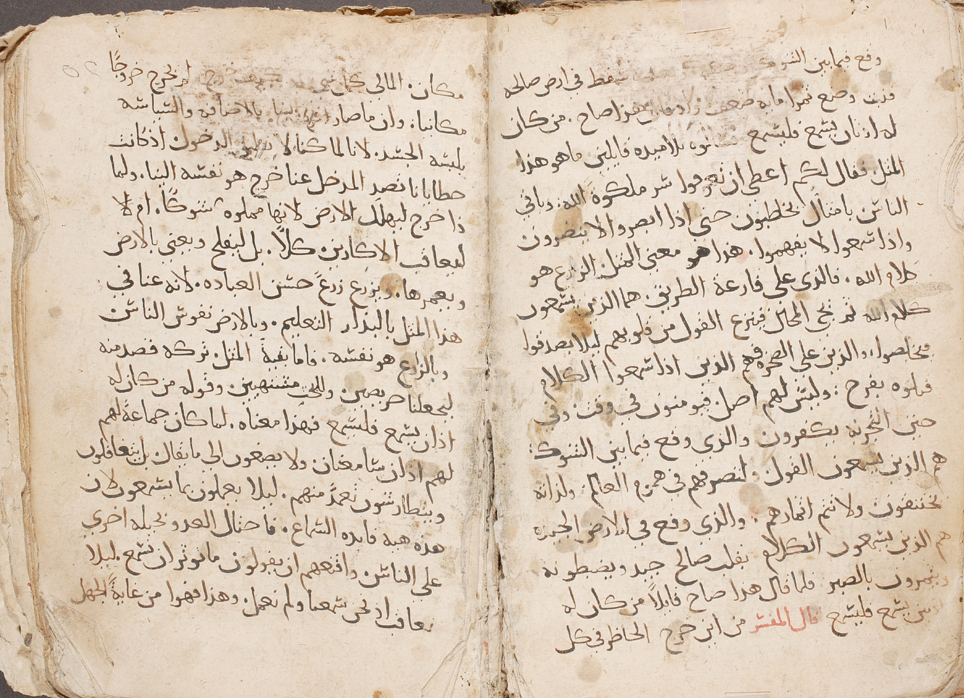 وقع فيما بين الشوك سقط في ارض صالحه
فنبت وصنع ثمرا مايه ضعف ولما قال هذا صاح . من كان
له اذنان يسمع فليسمع تلاميذه قايلين ماهو هذا
المثل . فقال لكم اعطي ان تعرفوا سر ملكوة الله . وباقي
الناس بامثال يخاطبون حتى اذا ابصروا لا يبصرون
واذا سمعوا لا يفهموا . هذا هو معنى المثل الزرع هو
كلام الله . فالذي على قارعة الطريق هما الذين يسمعون
كلام الله ثم يجي المحال فينزع القول من قلوبهم ليلا يصدقوا
فيخلصوا . والذين على الصخره فهم الذين اذا سمعوا الكلام
قبلوه بفرح : وليس لهم اصل فيومنون في وقت وفي
حين التجربه يكفرون والذي وقع فيما بين الشوك
هم الذين يسمعون القول . لتصرفهم في هموم العالم . ولذاته
يختنقون ولا تتم اثمارهم . والذي وقع في الارض الجيده
هم الذين يسمعون الكلام بقلب صالح جيد ويضبطونه
ويثمرون بالصبر فلما قال هذا صاح قايلا من كان له
اذنين يسمع فليسمع قال المفسر من اين خرج الحاضر في كل
مكان . المالي كل شي خرج ام يخرج خروجًا
مكانيا . وان ما صار الينا بالاضافه والشباشه
بلبسه الجسد . لانا لما كنا لا الدخول اذ كانت
خطايانا تصد المدخل عنا خرج هو نفسه الينا . ولما
ذا خرج ليهلك الارض لانها مملوه شوكًا . ام لا
ليعاقب الاكارين كلا . بل ليفلح ويعني بالارض
ويعمرها . ويزرع زرع حسن العباده . لانه عنا في
هذا المثل بالبذار التعليم . وبالارض نفوس الناس
وبالزارع هو نفسه . فاما بقية المثل . تركه قصد منه
ليجعلنا حريصين والحث منتبهين وقوله من كان له
اذان يسمع فليسمع فهذا معناه . لما كان جماعة لهم
لهم اذان ولا يصغون الى ما يقال بل يتغافلون
ويتطارشون تعمد منهم . ليلا يعملون بما يسمعون لان
هذه هيه فايده السماع . فاحتال العدو بحيله اخرى
على الناس واقنعهم ان يقولون ما نوثر ان نسمع . ليلا
نعاقب اذ نحن سمعنا ولم نعمل . وهذا فهوا من غاية الجهل